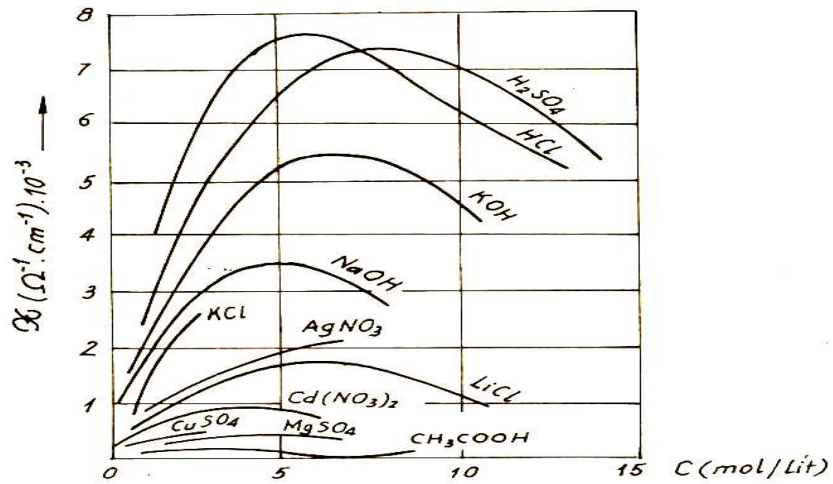 8
7
6
5
4
3
2
1
0
ϰ (Ω⁻¹.cm⁻¹).10⁻³
H₂SO₄
HCl
KOH
NaOH
KCl
AgNO₃
LiCl
Cd(NO₃)₂
CuSO₄
MgSO₄
CH₃COOH
0 5 10 15 C (mol/Lit)